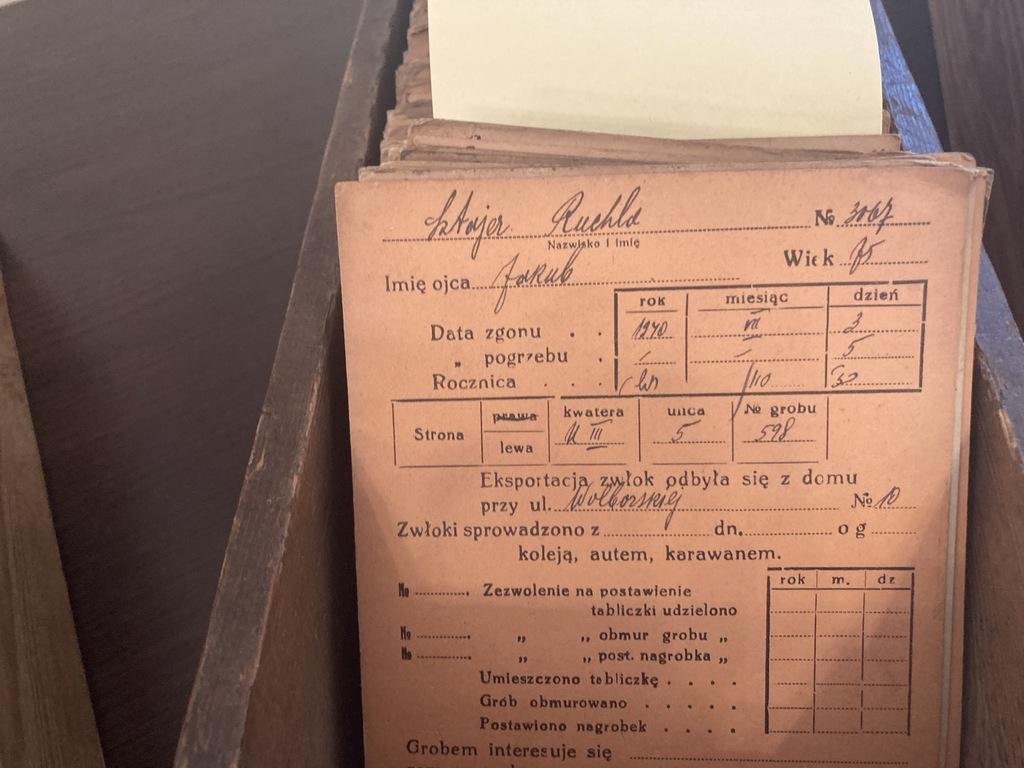 Sztajer Ruchla № 3067
Nazwisko i Imię
Wiek 75
Imię ojca Jakub
rok miesiąc dzień
Data zgonu . . 1940 VII 3
„ pogrzebu . 5
Rocznica . . .
Strona prawa lewa kwatera U III ulica 5 № grobu 598
Eksportacja zwłok odbyła się z domu
przy ul. Wolborskiej № 10
Zwłoki sprowadzono z dn. o g
koleją, autem, karawanem.
rok m. dz
№ Zezwolenie na postawienie
tabliczki udzielono
№ „ „ obmur grobu „
№ „ „ post. nagrobka „
Umieszczono tabliczkę . . . .
Grób obmurowano . . . . .
Postawiono nagrobek . . . .
Grobem interesuje się